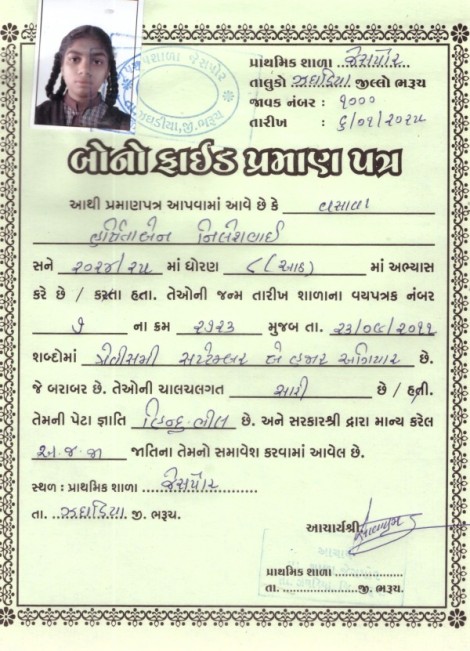 પ્રાથમિક શાળા જેસપોર
તાલુકો ઝઘડિયા જીલ્લો ભરૂચ
જાવક નંબર : ૧૦૦૦
તારીખ : ૬/૦૧/૨૦૨૫
બોનોફાઈડ પ્રમાણ પત્ર
આથી પ્રમાણપત્ર આપવામાં આવે છે કે વસાવા
હર્ષિતાબેન નિલેશભાઈ
સને ૨૦૨૪/૨૫ માં ધોરણ ૮ (આઠ) માં અભ્યાસ
કરે છે / કરતા હતા. તેઓની જન્મ તારીખ શાળાના વયપત્રક નંબર
૭ ના ક્રમ ૨૭૨૩ મુજબ તા. ૨૩/૦૯/૨૦૧૧
શબ્દોમાં ત્રેવીસમી સપ્ટેમ્બર બે હજાર અગિયાર છે.
જે બરાબર છે. તેઓની ચાલચલગત સારી છે / હતી.
તેમની પેટા જ્ઞાતિ હિન્દુ ભીલ છે. અને સરકારશ્રી દ્રારા માન્ય કરેલ
અ.જ.જા જાતિના તેમનો સમાવેશ કરવામાં આવેલ છે.
સ્થળ : પ્રાથમિક શાળા જેસપોર
તા. ઝઘડિયા જી. ભરૂચ.
આચાર્યશ્રી
પ્રાથમિક શાળા
તા. જી. ભરૂચ.